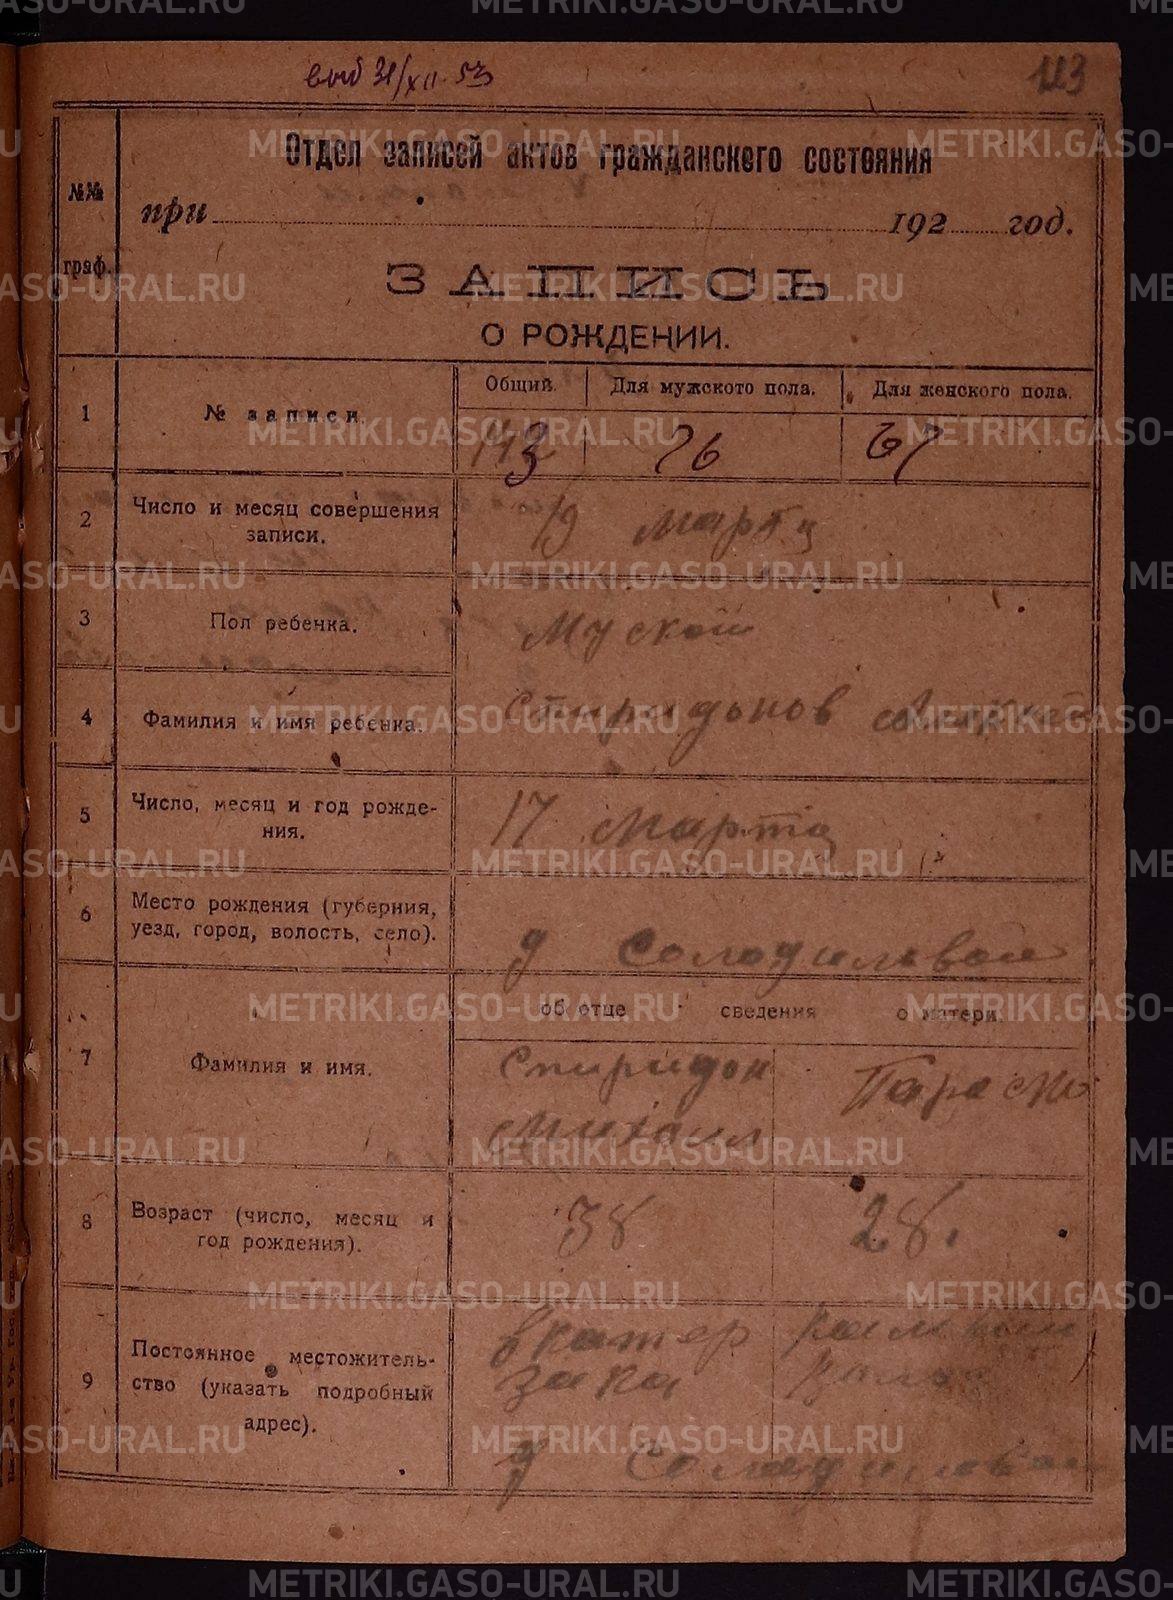 выд 31/XII-53
Отдел записей актов гражданского состояния
№№ граф.
при 192 год.
ЗАПИСЬ
О РОЖДЕНИИ.
1
№ записи.
Общий. Для мужского пола. Для женского пола.
143 76 67
2
Число и месяц совершения
записи.
19 марта
3
Пол ребенка.
Муской
4
Фамилия и имя ребенка.
Спиридонов
5
Число, месяц и год рожде-
ния.
17 марта
6
Место рождения (губерния,
уезд, город, волость, село).
д Солодиловой
об отце сведения о матери.
7
Фамилия и имя.
Спиридон
Михаил
8
Возраст (число, месяц и
год рождения).
38 28.
9
Постоянное местожитель-
ство (указать подробный
адрес).
д Солодиловой
METRIKI.GASO-URAL.RU